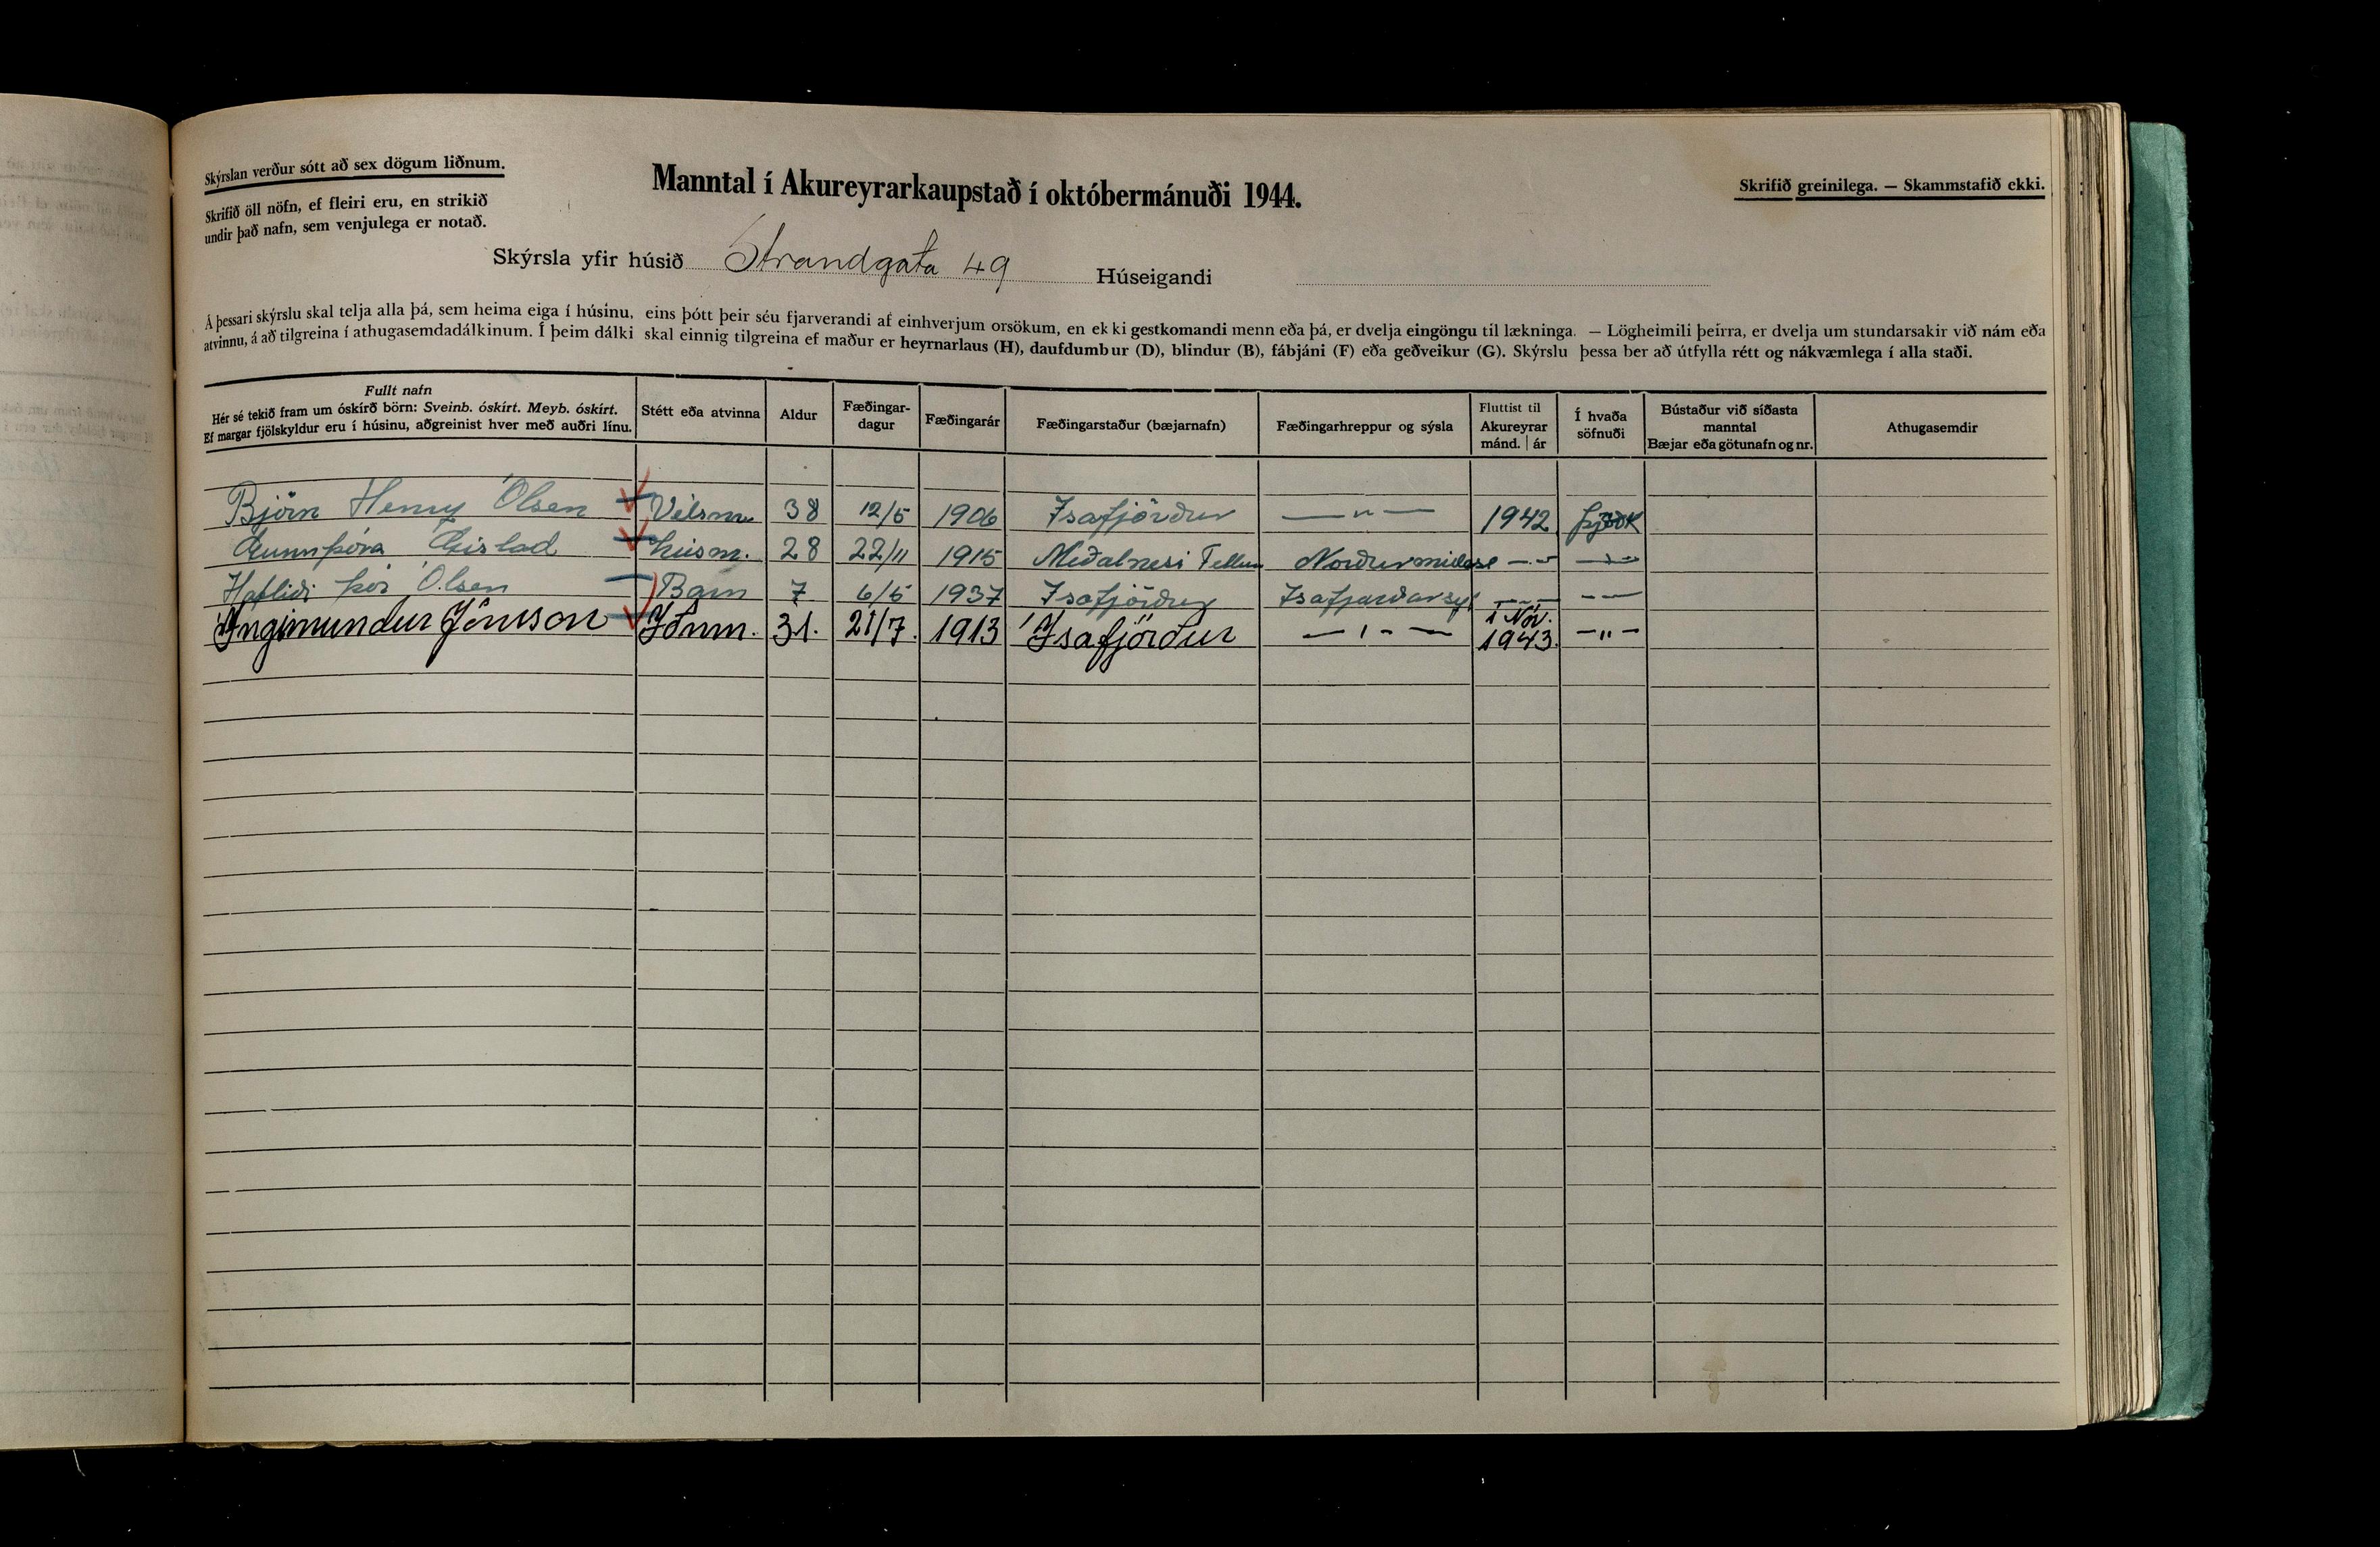 Skýrslan verður sótt að sex dögum liðnum.
Skrifið öll nöfn, ef fleiri eru, en strikið
undir það nafn, sem venjulega er notað.
Manntal í Akureyrarkaupstað í októbermánuði 1944.
Skrifið greinilega. — Skammstafið ekki.
Skýrsla yfir húsið Strandgata 49 Húseigandi
Á þessari skýrslu skal telja alla þá, sem heima eiga í húsinu, eins þótt þeir séu fjarverandi af einhverjum orsökum, en ekki gestkomandi menn eða þá, er dvelja eingöngu til lækninga. — Lögheimili þeirra, er dvelja um stundarsakir við nám eða
atvinnu, á að tilgreina í athugasemdadálkinum. Í þeim dálki skal einnig tilgreina ef maður er heyrnarlaus (H), daufdumbur (D), blindur (B), fábjáni (F) eða geðveikur (G). Skýrslu þessa ber að útfylla rétt og nákvæmlega í alla staði.
Fullt nafn
Hér sé tekið fram um óskírð börn: Sveinb. óskírt. Meyb. óskírt.
Ef margar fjölskyldur eru í húsinu, aðgreinist hver með auðri línu.
Stétt eða atvinna
Aldur
Fæðingar-
dagur
Fæðingarár
Fæðingarstaður (bæjarnafn)
Fæðingarhreppur og sýsla
Fluttist til
Akureyrar
mánd. | ár
Í hvaða
söfnuði
Bústaður við síðasta
manntal
Bæjar eða götunafn og nr.
Athugasemdir
Björn Henry Olsen Vélsm. 38 12/5 1906 Isafjörður — " — 1942 Þjóðk
Gunnþóra Gislad húsm. 28 22/11 1915 Meðalnesi Fellum Norðurmúlas — " — — " —
Hafliði Þór Olsen Barn 7 6/5 1937 Isafjörður Isafjarðarsýs — " — — " —
Ingimundur Jónsson Iðnm. 31. 21/7. 1913 Ísafjörður — " — 1 Nóv. 1943. — " —